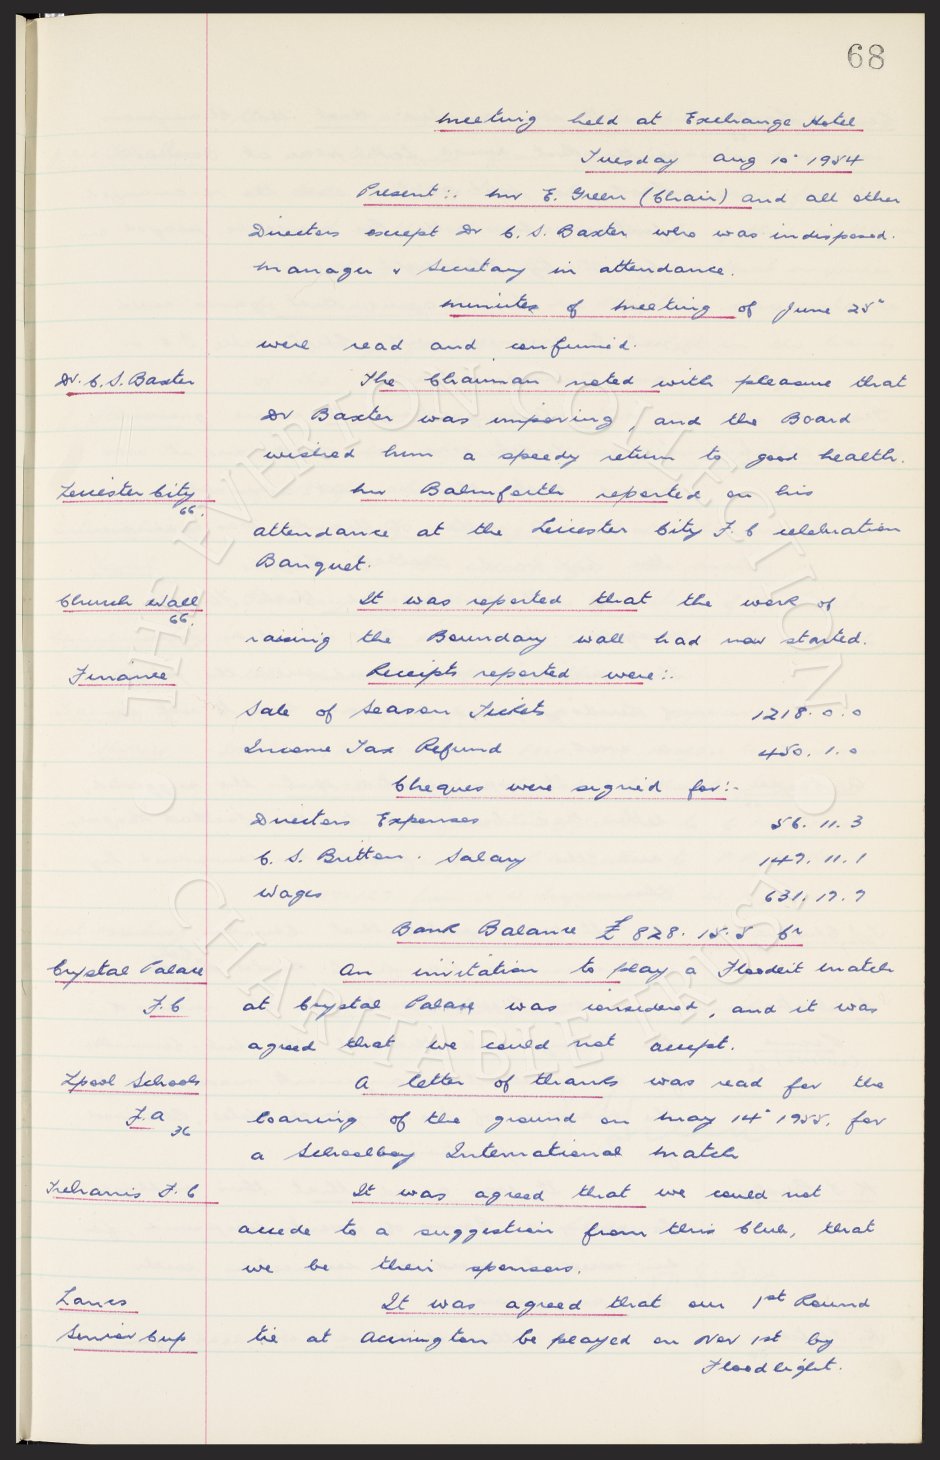 68
Meeting held at Exchange Hotel
Tuesday Aug 10" 1954
Present:. Mr E. Green (Chair) and all other
Directors except Dr C. S. Baxter who was indisposed.
Manager & Secretary in attendance.
Minutes of Meeting of June 25"
were read and confirmed.
Dr. C. S. Baxter The Chairman noted with pleasure that
Dr Baxter was improving, and the Board
wished him a speedy return to good health.
Leicester City Mr Balmforth reported on his
66. attendance at the Leicester City F. C celebration
Banquet.
Church Wall It was reported that the work of
66. raising the Boundary wall had now started.
Finance Receipts reported were:.
Sale of Season Tickets 1218. 0. 0
Income Tax Refund 450. 1. 0
Cheques were signed for:-
Directors Expenses 56. 11. 3
C. S. Britton. Salary 147. 11. 1
Wages 631. 17. 7
Bank Balance £ 828. 15. 5 Cr
Crystal Palace An invitation to play a Floodlit match
F. C at Crystal Palace was considered, and it was
agreed that we could not accept.
Lpool Schools A letter of thanks was read for the
F. A loaning of the ground on May 14" 1955, for
36
a Schoolboy International match
F. C It was agreed that we could not
accede to a suggestion from this Club, that
we be their sponsors.
Lancs It was agreed that our 1st Round
Senior Cup tie at Accrington be played on Nov 1st by
Floodlight.
THE EVERTON COLLECTION
CHARITABLE TRUST